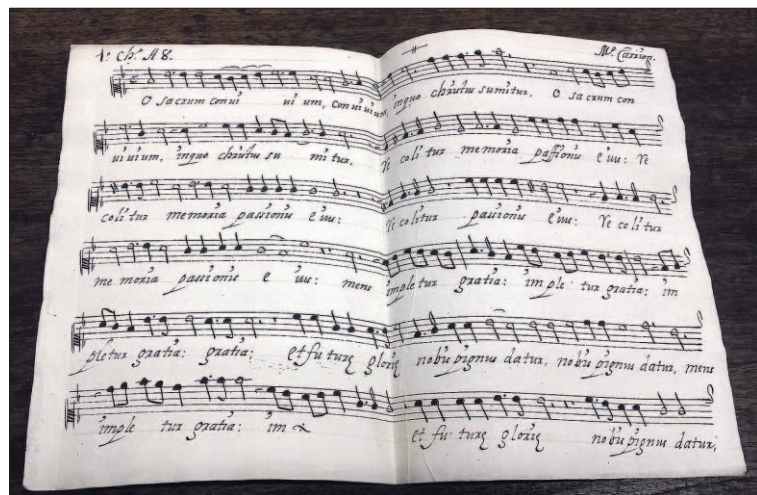 1º Chº A 8. Mº Carrion.
O sacrum conui ui um, conuiuium, inquo christus sumitur, O sacrum con
uiuium, inquo christus su mi tur, Re coli tur memoria passionis eius: Re
coli tur memoria passionis eius: Re colitur passionis eius: Re coli tur
me moria passionis e ius: mens imple tur gratia: im ple tur gratia: im
pletur gratia: gratia: et fu turę glorię nobis pignus datur, nobis pignus datur, mens
imple tur gratia: im et fu turę glorię nobis pignus datur,